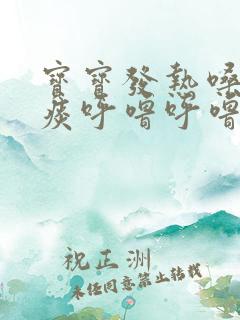 寶寶發熱嗓
痰呼嚕呼嚕
祝正洲
未经同意禁止转载